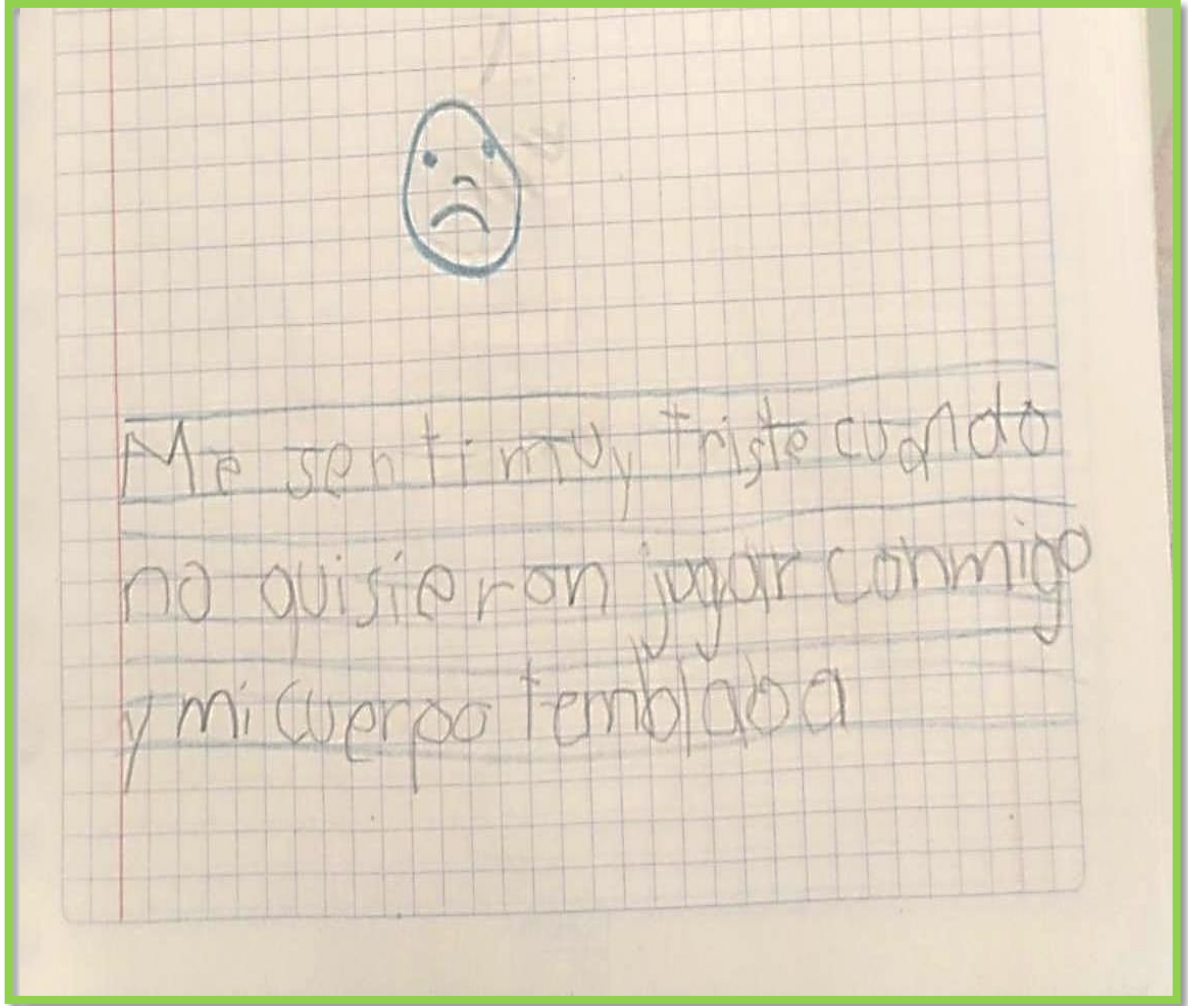 Me senti muy triste cuando
no quisieron jugar conmigo
y mi cuerpo temblaba